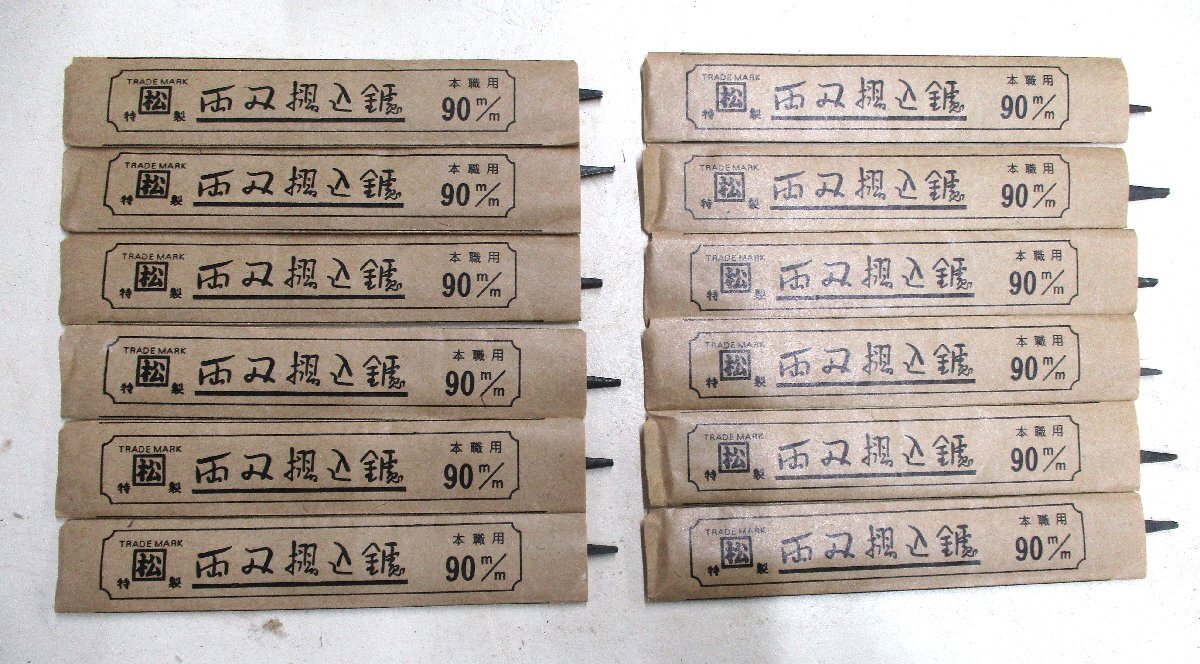 TRADE MARK
松
特 製
両刄摺込鑢
本職用
90 m/m
TRADE MARK
松
特 製
両刄摺込鑢
本職用
90 m/m
TRADE MARK
松
特 製
両刄摺込鑢
本職用
90 m/m
TRADE MARK
松
特 製
両刄摺込鑢
本職用
90 m/m
TRADE MARK
松
特 製
両刄摺込鑢
本職用
90 m/m
TRADE MARK
松
特 製
両刄摺込鑢
本職用
90 m/m
TRADE MARK
松
特 製
両刄摺込鑢
本職用
90 m/m
TRADE MARK
松
特 製
両刄摺込鑢
本職用
90 m/m
TRADE MARK
松
特 製
両刄摺込鑢
本職用
90 m/m
TRADE MARK
松
特 製
両刄摺込鑢
本職用
90 m/m
TRADE MARK
松
特 製
両刄摺込鑢
本職用
90 m/m
TRADE MARK
松
特 製
両刄摺込鑢
本職用
90 m/m